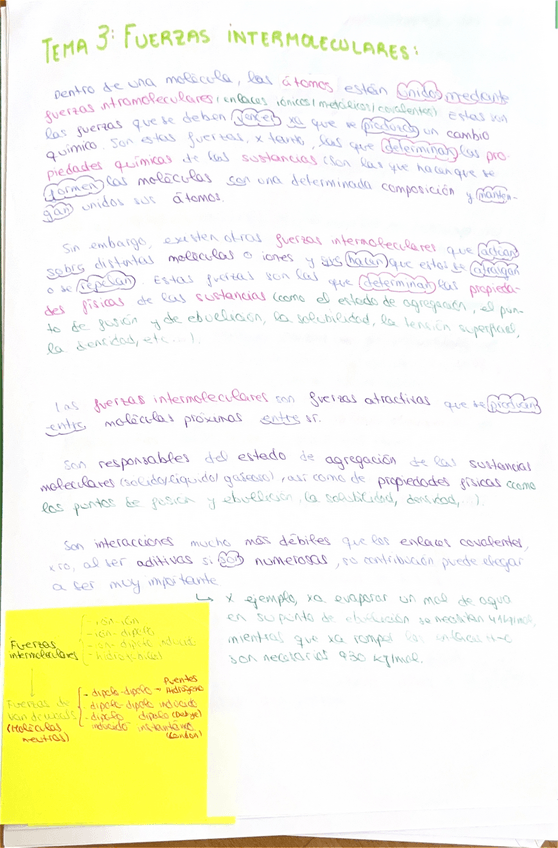 TEMA 3: FUERZAS INTERMOLECULARES:
Dentro de una molécula, los átomos están unidos mediante
fuerzas intramoleculares (enlaces iónicos/metálicos/covalentes) estas son
las fuerzas que se deben vencer xa que se produzca un cambio
químico. Son estas fuerzas, x tanto, las que determinan las pro-
piedades químicas de las sustancias (son las que hacen que se
formen las moléculas con una determinada composición y manten-
gan unidos sus átomos.
Sin embargo, existen otras fuerzas intermoleculares que actúan
sobre distintas moléculas o iones y que hacen que estos se atraigan
o se repulsan. Estas fuerzas son las que determinan las propieda-
des físicas de las sustancias (como el estado de agregación, el pun-
to de fusión y de ebullición, la solubilidad, la tensión superficial,
la densidad, etc...).
Las fuerzas intermoleculares son fuerzas atractivas que se producen
entre moléculas próximas entre sí.
Son responsables del estado de agregación de las sustancias
moleculares (sólido/líquido/gaseoso), así como de propiedades físicas (como
los puntos de fusión y ebullición, la solubilidad, densidad,...).
Son interacciones mucho más débiles que los enlaces covalentes,
xro, al ser aditivas si son numerosas, su contribución puede llegar
a ser muy importante
↳ x ejemplo, xa evaporar un mol de agua
en su punto de ebullición se necesitan 41 kJ/mol,
mientras que xa romper los enlaces H-O
son necesarios 930 kJ/mol.
Fuerzas intermoleculares
- ión-ión
- ión-dipolo
- ión-dipolo inducido
- hidrofóbicas
Fuerzas de van der waals (Moléculas neutras)
- dipolo-dipolo → Puentes Hidrógeno
- dipolo-dipolo inducido
- dipolo dipolo (Debye)
inducido instantáneo (London)